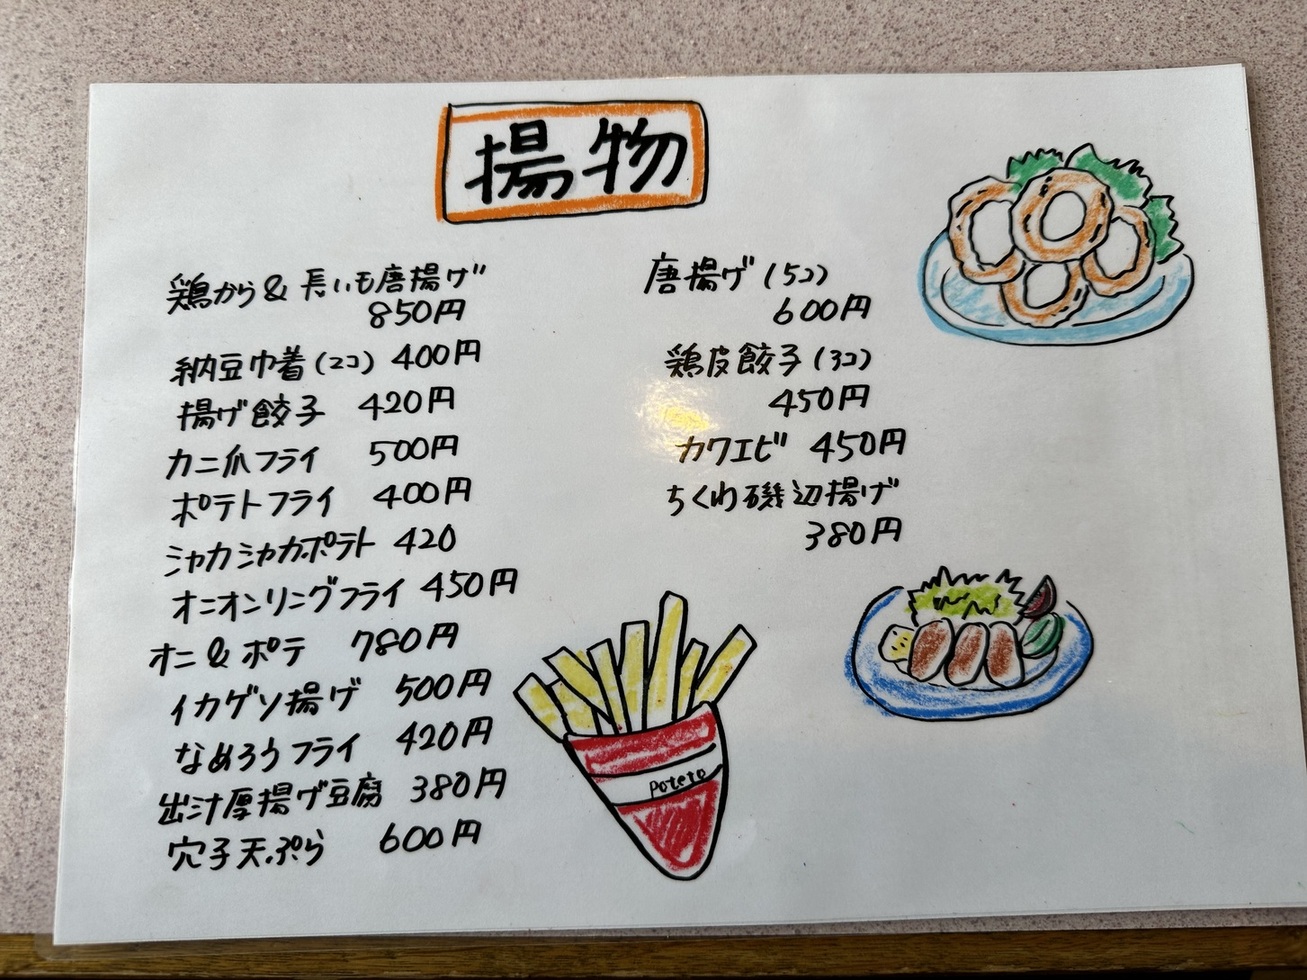 揚物
鶏から&長いも唐揚げ
850円
納豆巾着(2コ) 400円
揚げ餃子 420円
カニ爪フライ 500円
ポテトフライ 400円
シャカシャカポテト 420
オニオンリングフライ 450円
オニ&ポテ 780円
イカゲソ揚げ 500円
なめろうフライ 420円
出汁厚揚げ豆腐 380円
穴子天ぷら 600円
唐揚げ(5コ)
600円
鶏皮餃子(3コ)
450円
カワエビ 450円
ちくわ磯辺揚げ
380円
Poteto